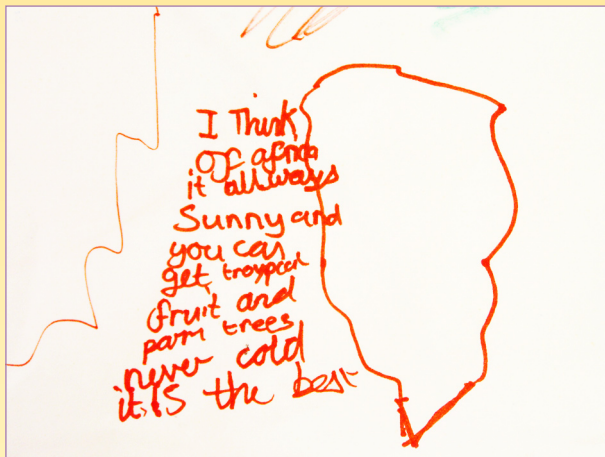 I Think
Of africa
it allways
Sunny and
you can
get troypcal
fruit and
parm trees
never cold
it is the best